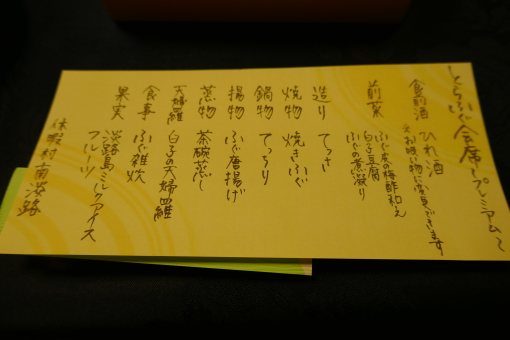 とらふぐ会席〜プレミアム〜
食前酒 ひれ酒
※お吸い物に変更できます
前菜 ふぐ皮の梅酢和え
白子豆腐
ふぐの煮凝り
造り てっさ
焼物 焼きふぐ
鍋物 てっちり
揚物 ふぐ唐揚げ
蒸物 茶碗蒸し
天婦羅 白子の天婦羅
食事 ふぐ雑炊
果実 淡路島ミルクアイス
フルーツ
休暇村南淡路